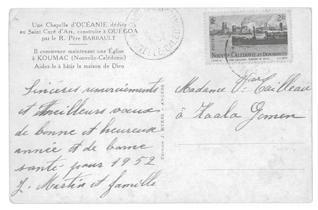 Une Chapelle d'OCÉANIE dédiée
au Saint Curé d'Ars, construite à OUÉGOA
par le R. Père BARRAULT
Il construit maintenant une Église
à KOUMAC (Nouvelle-Calédonie)
Aidez-le à bâtir la maison de Dieu
NOUVELLE CALÉDONIE ET DÉPENDANCES
Sincères remerciements
et Meilleurs vœux
de bonne et heureuse
année et de bonne
santé pour 1952
J. Martin et famille
Madame Vve Cailleau
à Kaala Gomen